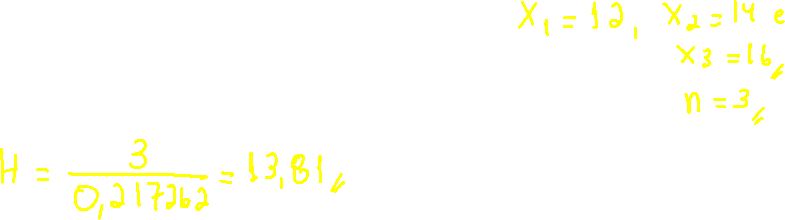 x₁ = 12, x₂ = 14 e
x₃ = 16
n = 3
H = 3/0,217262 = 13,81